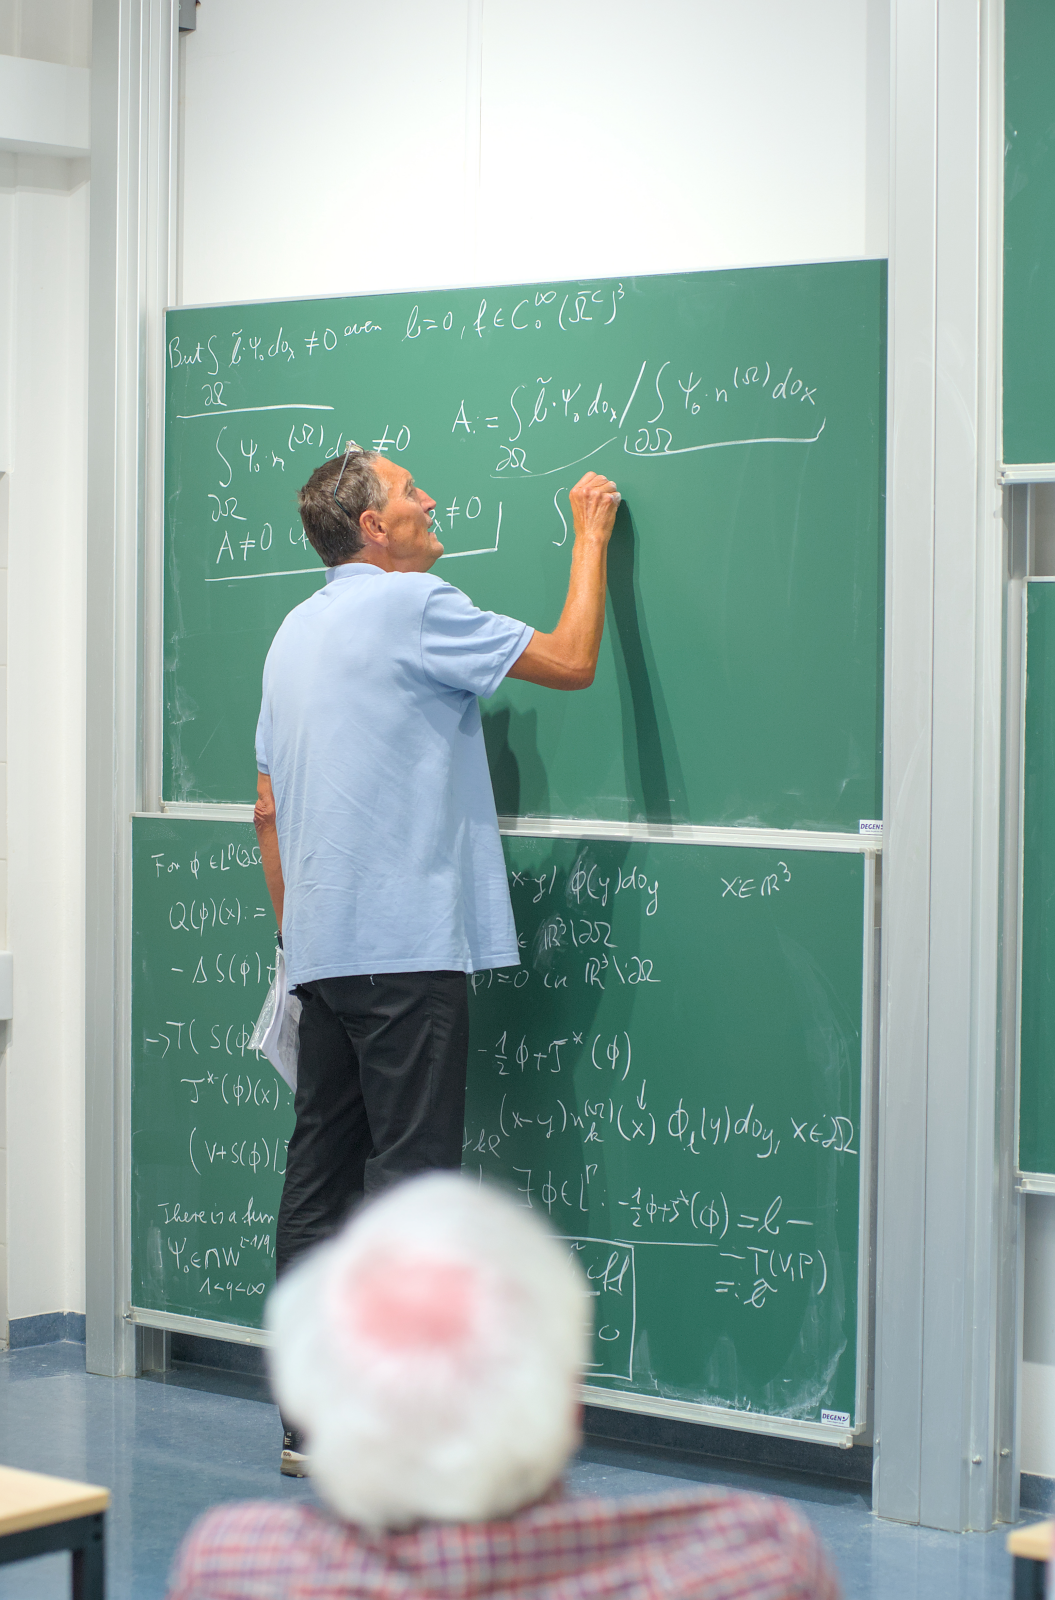 But ∫ b̃·Ψ₀ do_x ≠ 0 even b=0, f ∈ C₀^∞(Ω̄^c)³
∂Ω
A := ∫ b̃·Ψ₀ do_x / ∫ Ψ₀·n^(Ω) do_x
∂Ω ∂Ω
∫ Ψ₀·n^(Ω) do ≠ 0
∂Ω
A ≠ 0 (f x ≠ 0
∫
DEGEN
For ϕ ∈ L^p(∂Ω x-y) ϕ(y) do_y x ∈ ℝ³
Q(ϕ)(x) := ∈ ℝ³\∂Ω
- Δ S(ϕ) + ϕ) = 0 in ℝ³\∂Ω
→ T( S(ϕ), -½ϕ + J*(ϕ)
J*(ϕ)(x) : jkl (x-y) n_k^(Ω)(x) ϕ_l(y) do_y, x ∈ ∂Ω
(V+S(ϕ)/ ∃ ϕ ∈ L^p : -½ϕ+J*(ϕ) = b -
There is a fun - T(V,P)
Ψ₀ ∈ ∩ W^{2-1/q, =: b̃
1<q<∞ = 0
DEGEN